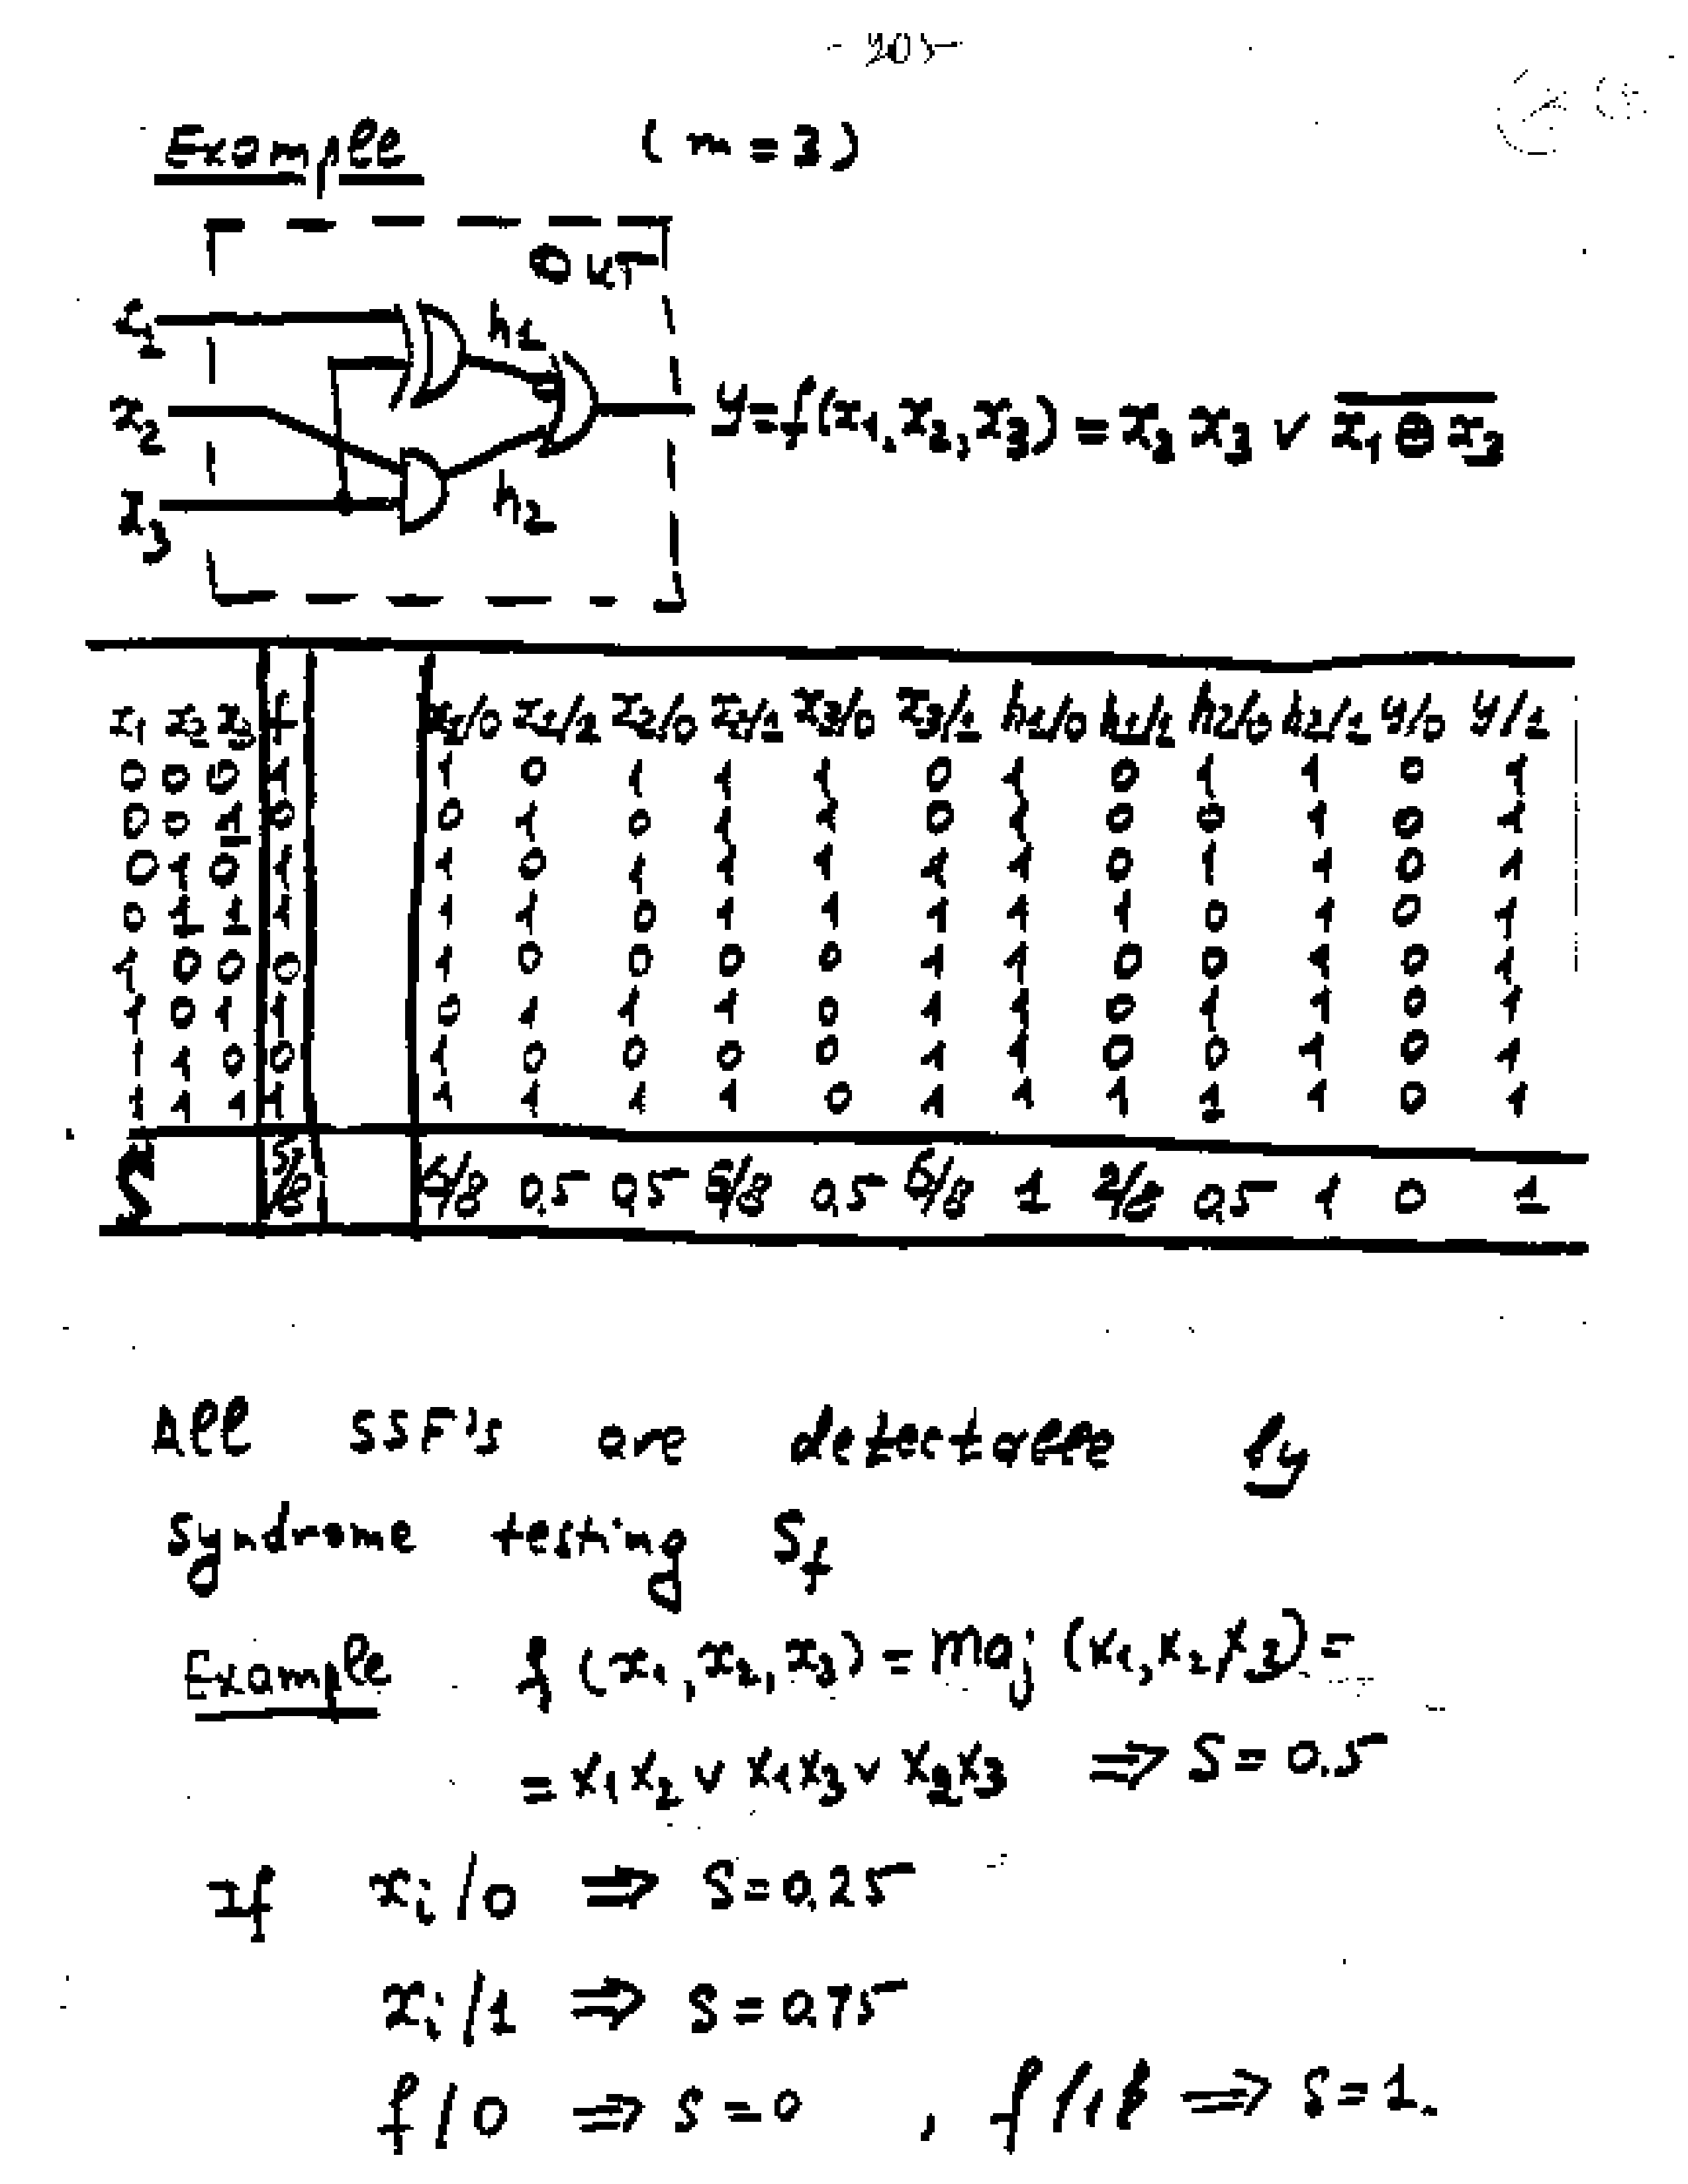 - 205-
Example (m=3)
OUT
x1
h1
x2
y=f(x1,x2,x3) = x2 x3 ∨ \overline{x1 ⊕ x3}
h2
x3
x1 x2 x3 f x1/0 x1/1 x2/0 x2/1 x3/0 x3/1 h1/0 h1/1 h2/0 h2/1 y/0 y/1
0 0 0 1 1 0 1 1 1 0 1 0 1 1 0 1
0 0 1 0 0 1 0 1 1 0 1 0 0 1 0 1
0 1 0 1 1 0 1 1 1 1 1 0 1 1 0 1
0 1 1 1 1 1 0 1 1 1 1 1 0 1 0 1
1 0 0 0 1 0 0 0 0 1 1 0 0 1 0 1
1 0 1 1 0 1 1 1 0 1 1 0 1 1 0 1
1 1 0 0 1 0 0 0 0 1 1 0 0 1 0 1
1 1 1 1 1 1 1 1 0 1 1 1 1 1 0 1
S 5/8 6/8 0.5 0.5 6/8 0.5 6/8 1 2/8 0.5 1 0 1
All SSF's are detectable by
Syndrome testing Sf
Example f(x1,x2,x3) = Maj(x1,x2,x3) =
= x1x2 ∨ x1x3 ∨ x2x3 ⇒ S = 0.5
If xi/0 ⇒ S=0.25
xi/1 ⇒ S=0.75
f/0 ⇒ S=0 , f/1 ⇒ S=1.